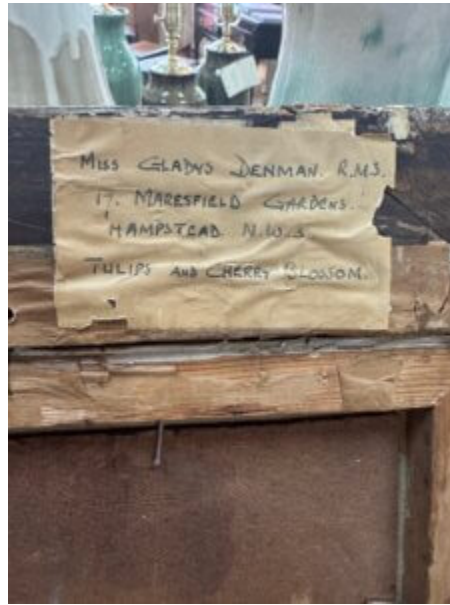 MISS GLADYS DENMAN. R.M.S.
17. MARESFIELD GARDENS.
HAMPSTEAD. N.W.3.
TULIPS AND CHERRY BLOSSOM.